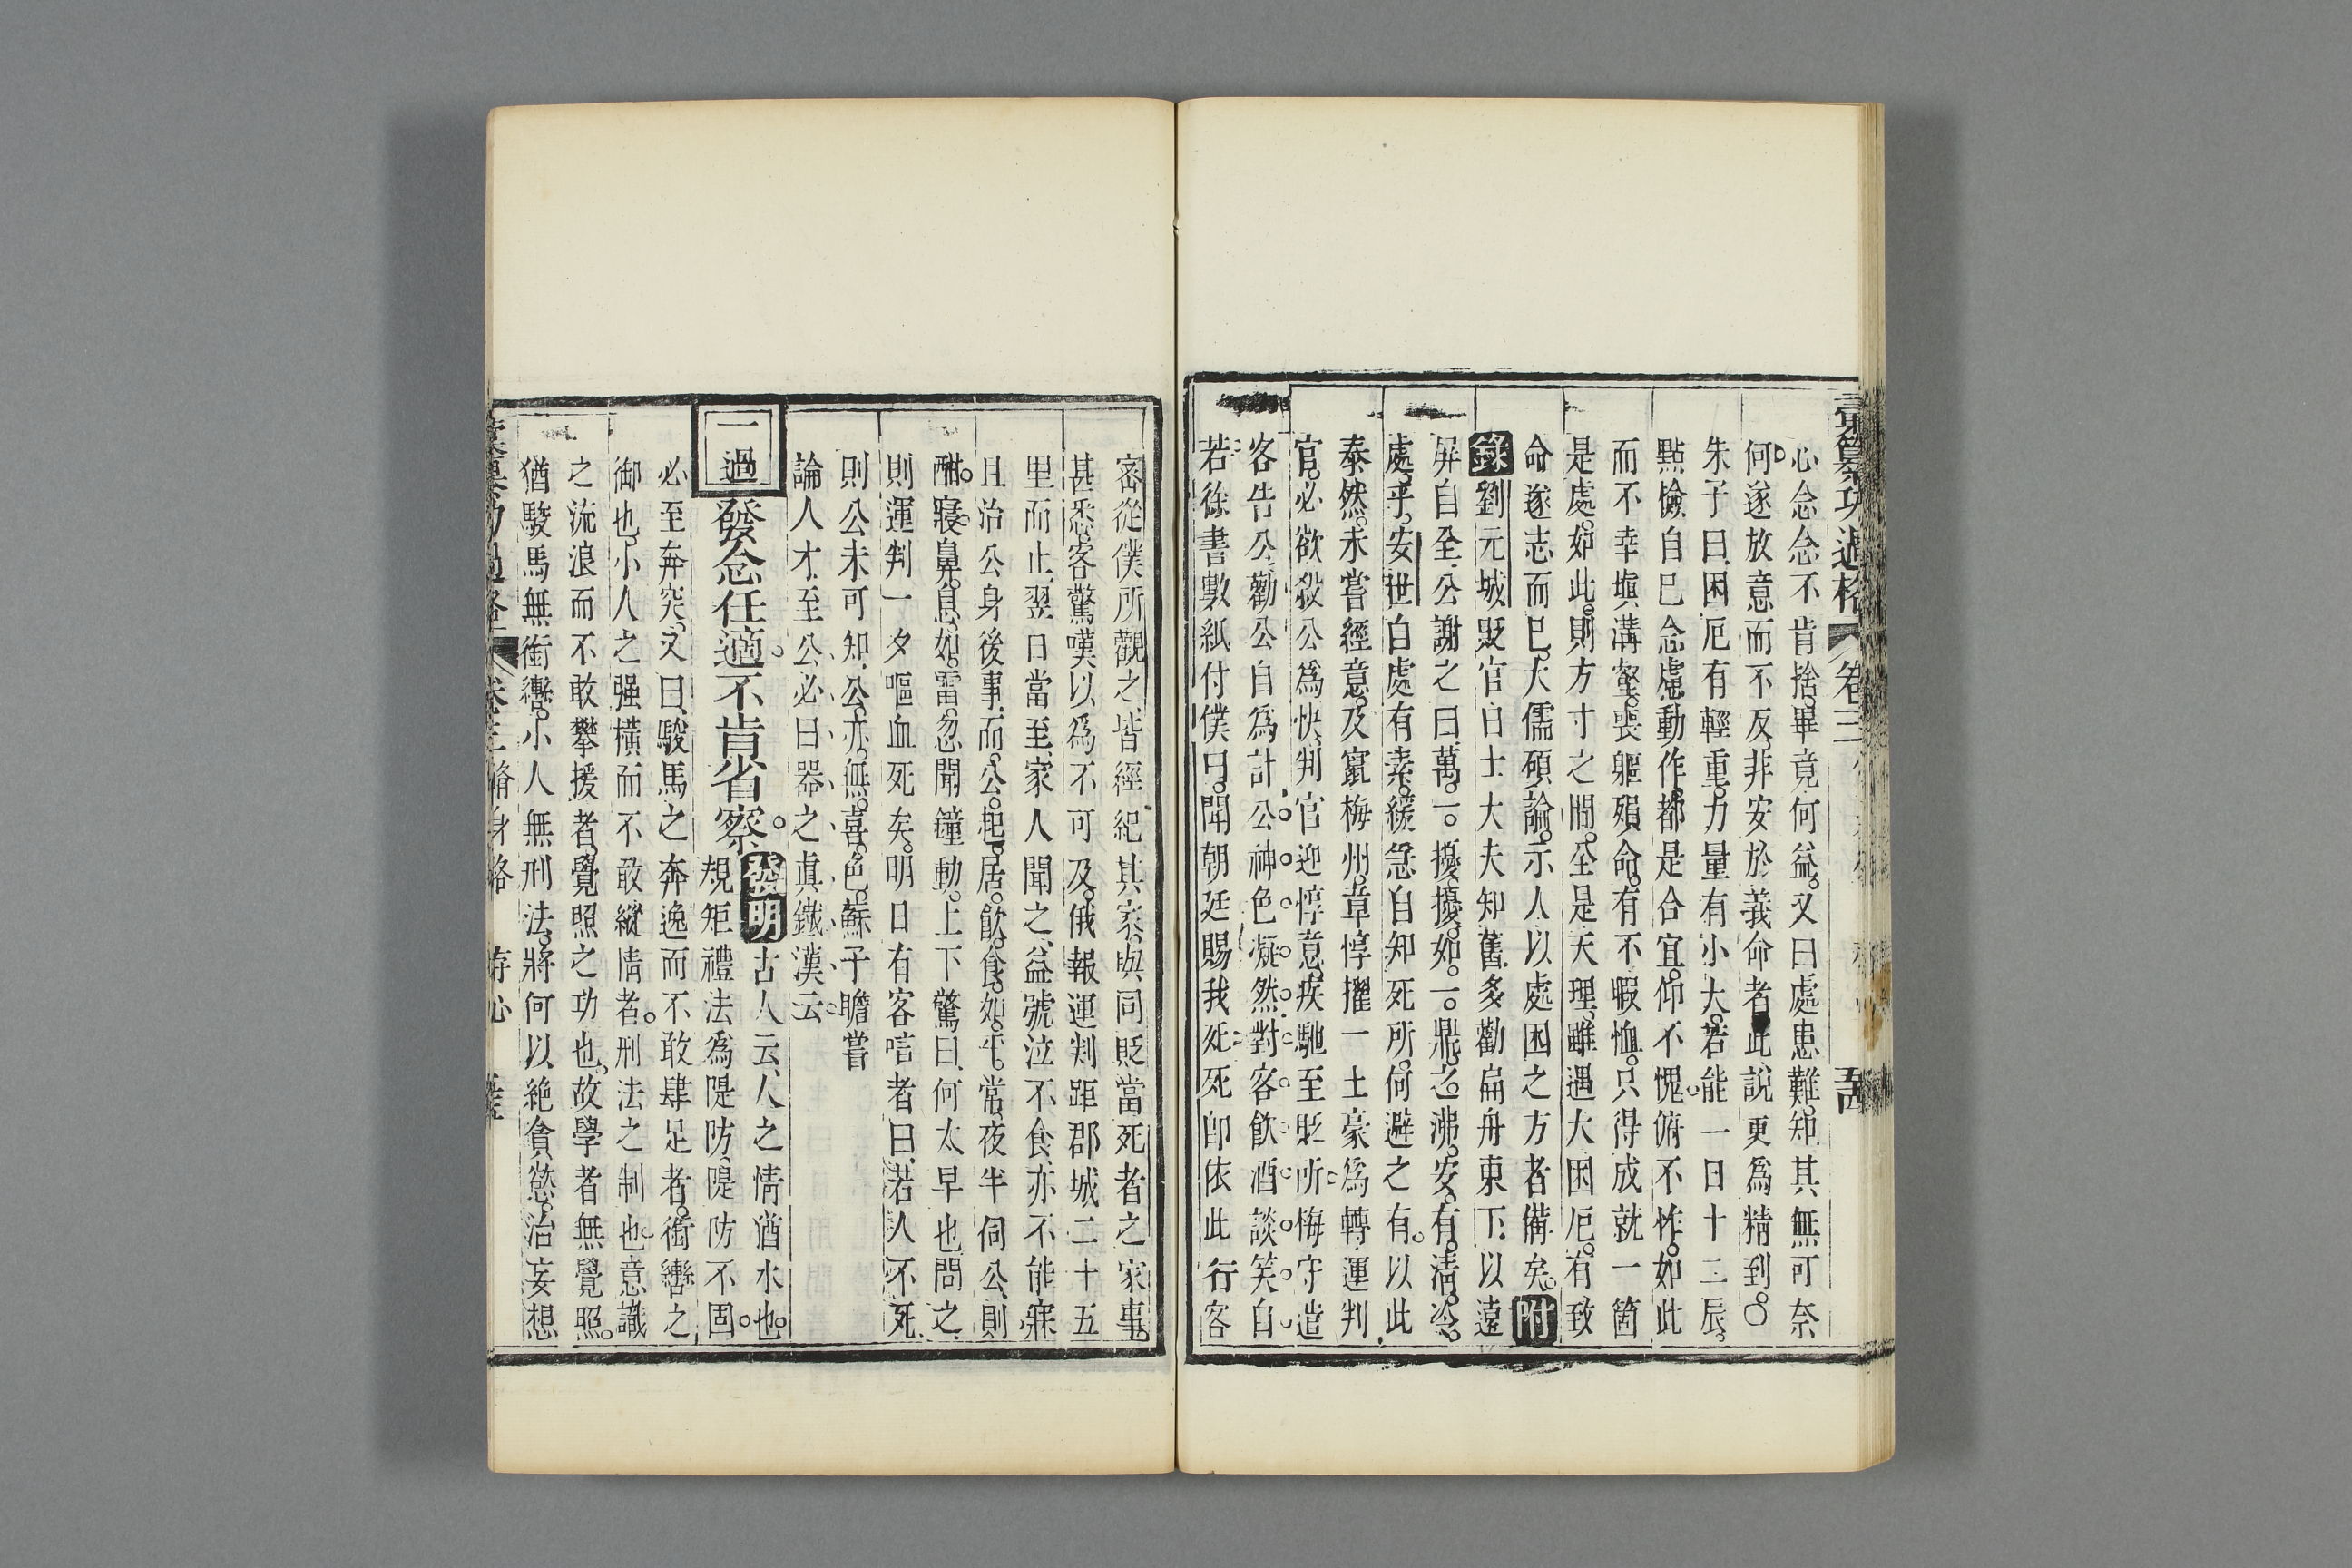 彙纂功過格 卷三 五四
心念念不肯捨畢竟何益又曰處患難知其無可奈
何遂放意而不反非安於義命者此說更爲精到○
朱子曰困厄有輕重力量有小大若能一日十二辰
點檢自巳念慮動作都是合宜仰不愧俯不怍如此
而不幸塡溝壑喪軀殞命有不暇恤只得成就一箇
是處如此則方寸之間全是天理雖遇大困厄有致
命遂志而巳大儒碩論示人以處困之方者備矣附
錄劉元城貶官日士大夫知舊多勸扁舟東下以遠
屏自全公謝之曰萬一擾擾如一鼎之沸安有淸冷
處乎安世自處有素緩急自知死所何避之有以此
泰然未嘗經意及竄梅州章惇擢一土豪爲轉運判
官必欲殺公爲快判官迎惇意疾馳至貶所梅守遣
客告公勸公自爲計公神色凝然對客飮酒談笑自
若徐書數紙付僕曰聞朝廷賜我死死卽依此行客
密從僕所觀之皆經紀其家與同貶當死者之家事
甚悉客驚嘆以爲不可及俄報運判距郡城二十五
里而止翌日當至家人聞之益號泣不食亦不能寐
且治公身後事而公起居飮食如平常夜半伺公則
酣寢鼻息如雷忽聞鐘動上下驚曰何太早也問之
則運判一夕嘔血死矣明日有客唁者曰若人不死
則公未可知公亦無喜色蘇子瞻嘗
論人才至公必曰器之眞鐵漢云
一過 發念任適不肯省察 發明古人云人之情猶水也
規矩禮法爲隄防隄防不固
必至奔突又曰駿馬之奔逸而不敢肆足者銜轡之
御也小人之强橫而不敢縱情者刑法之制也意識
之流浪而不敢攀援者覺照之功也故學者無覺照
猶駿馬無銜轡小人無刑法將何以絶貪慾治妄想
彙纂功過格 卷三 脩身格 存心